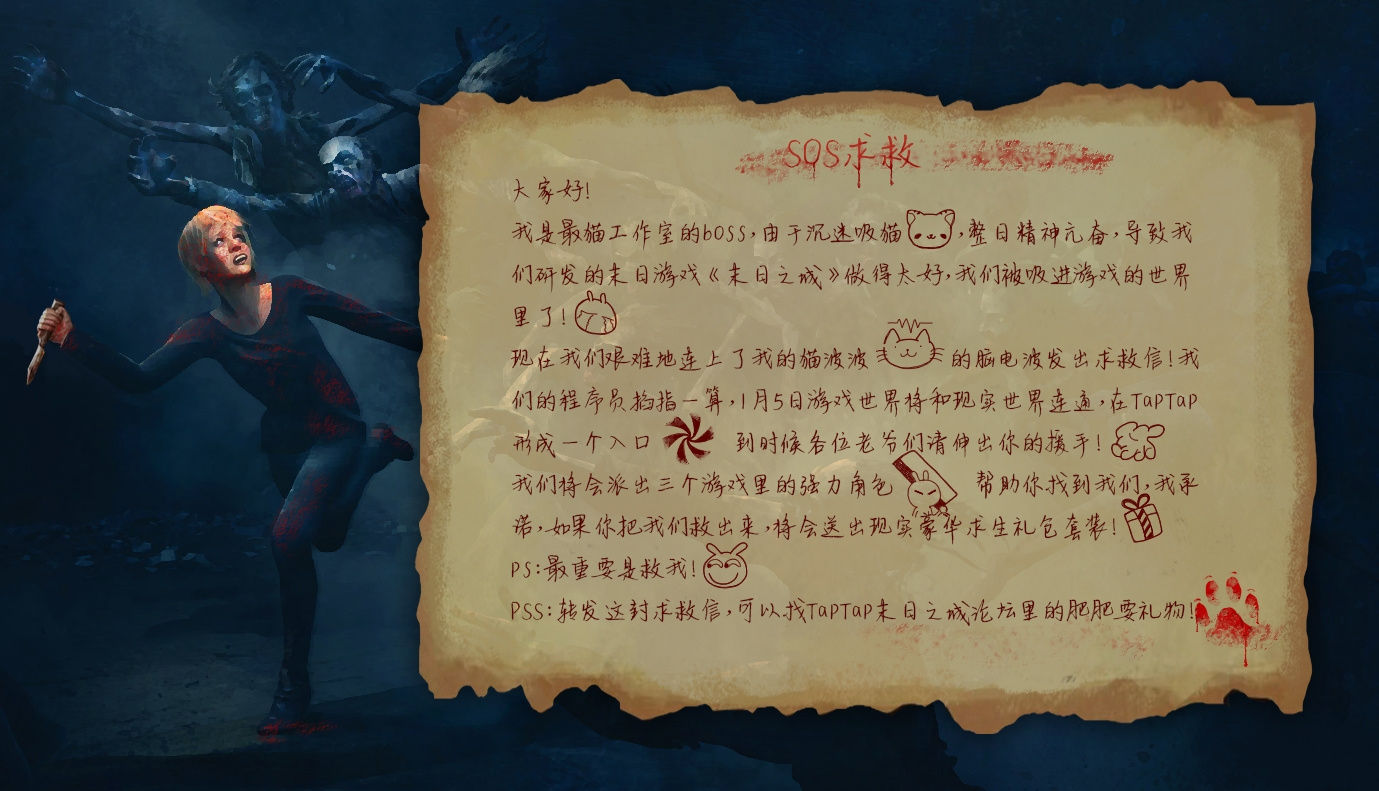 SOS求救
大家好!
我是最猫工作室的boss,由于沉迷吸猫,整日精神亢奋,导致我
们研发的末日游戏《末日之城》做得太好,我们被吸进游戏的世界
里了!
现在我们艰难地连上了我的猫波波的脑电波发出求救信!我
们的程序员掐指一算,1月5日游戏世界将和现实世界连通,在TapTap
形成一个入口 到时候各位老爷们请伸出你的援手!
我们将会派出三个游戏里的强力角色 帮助你找到我们,我承
诺,如果你把我们救出来,将会送出现实豪华求生礼包套装!
PS:最重要是救我!
PSS:转发这封求救信,可以找TapTap末日之城论坛里的肥肥要礼物!